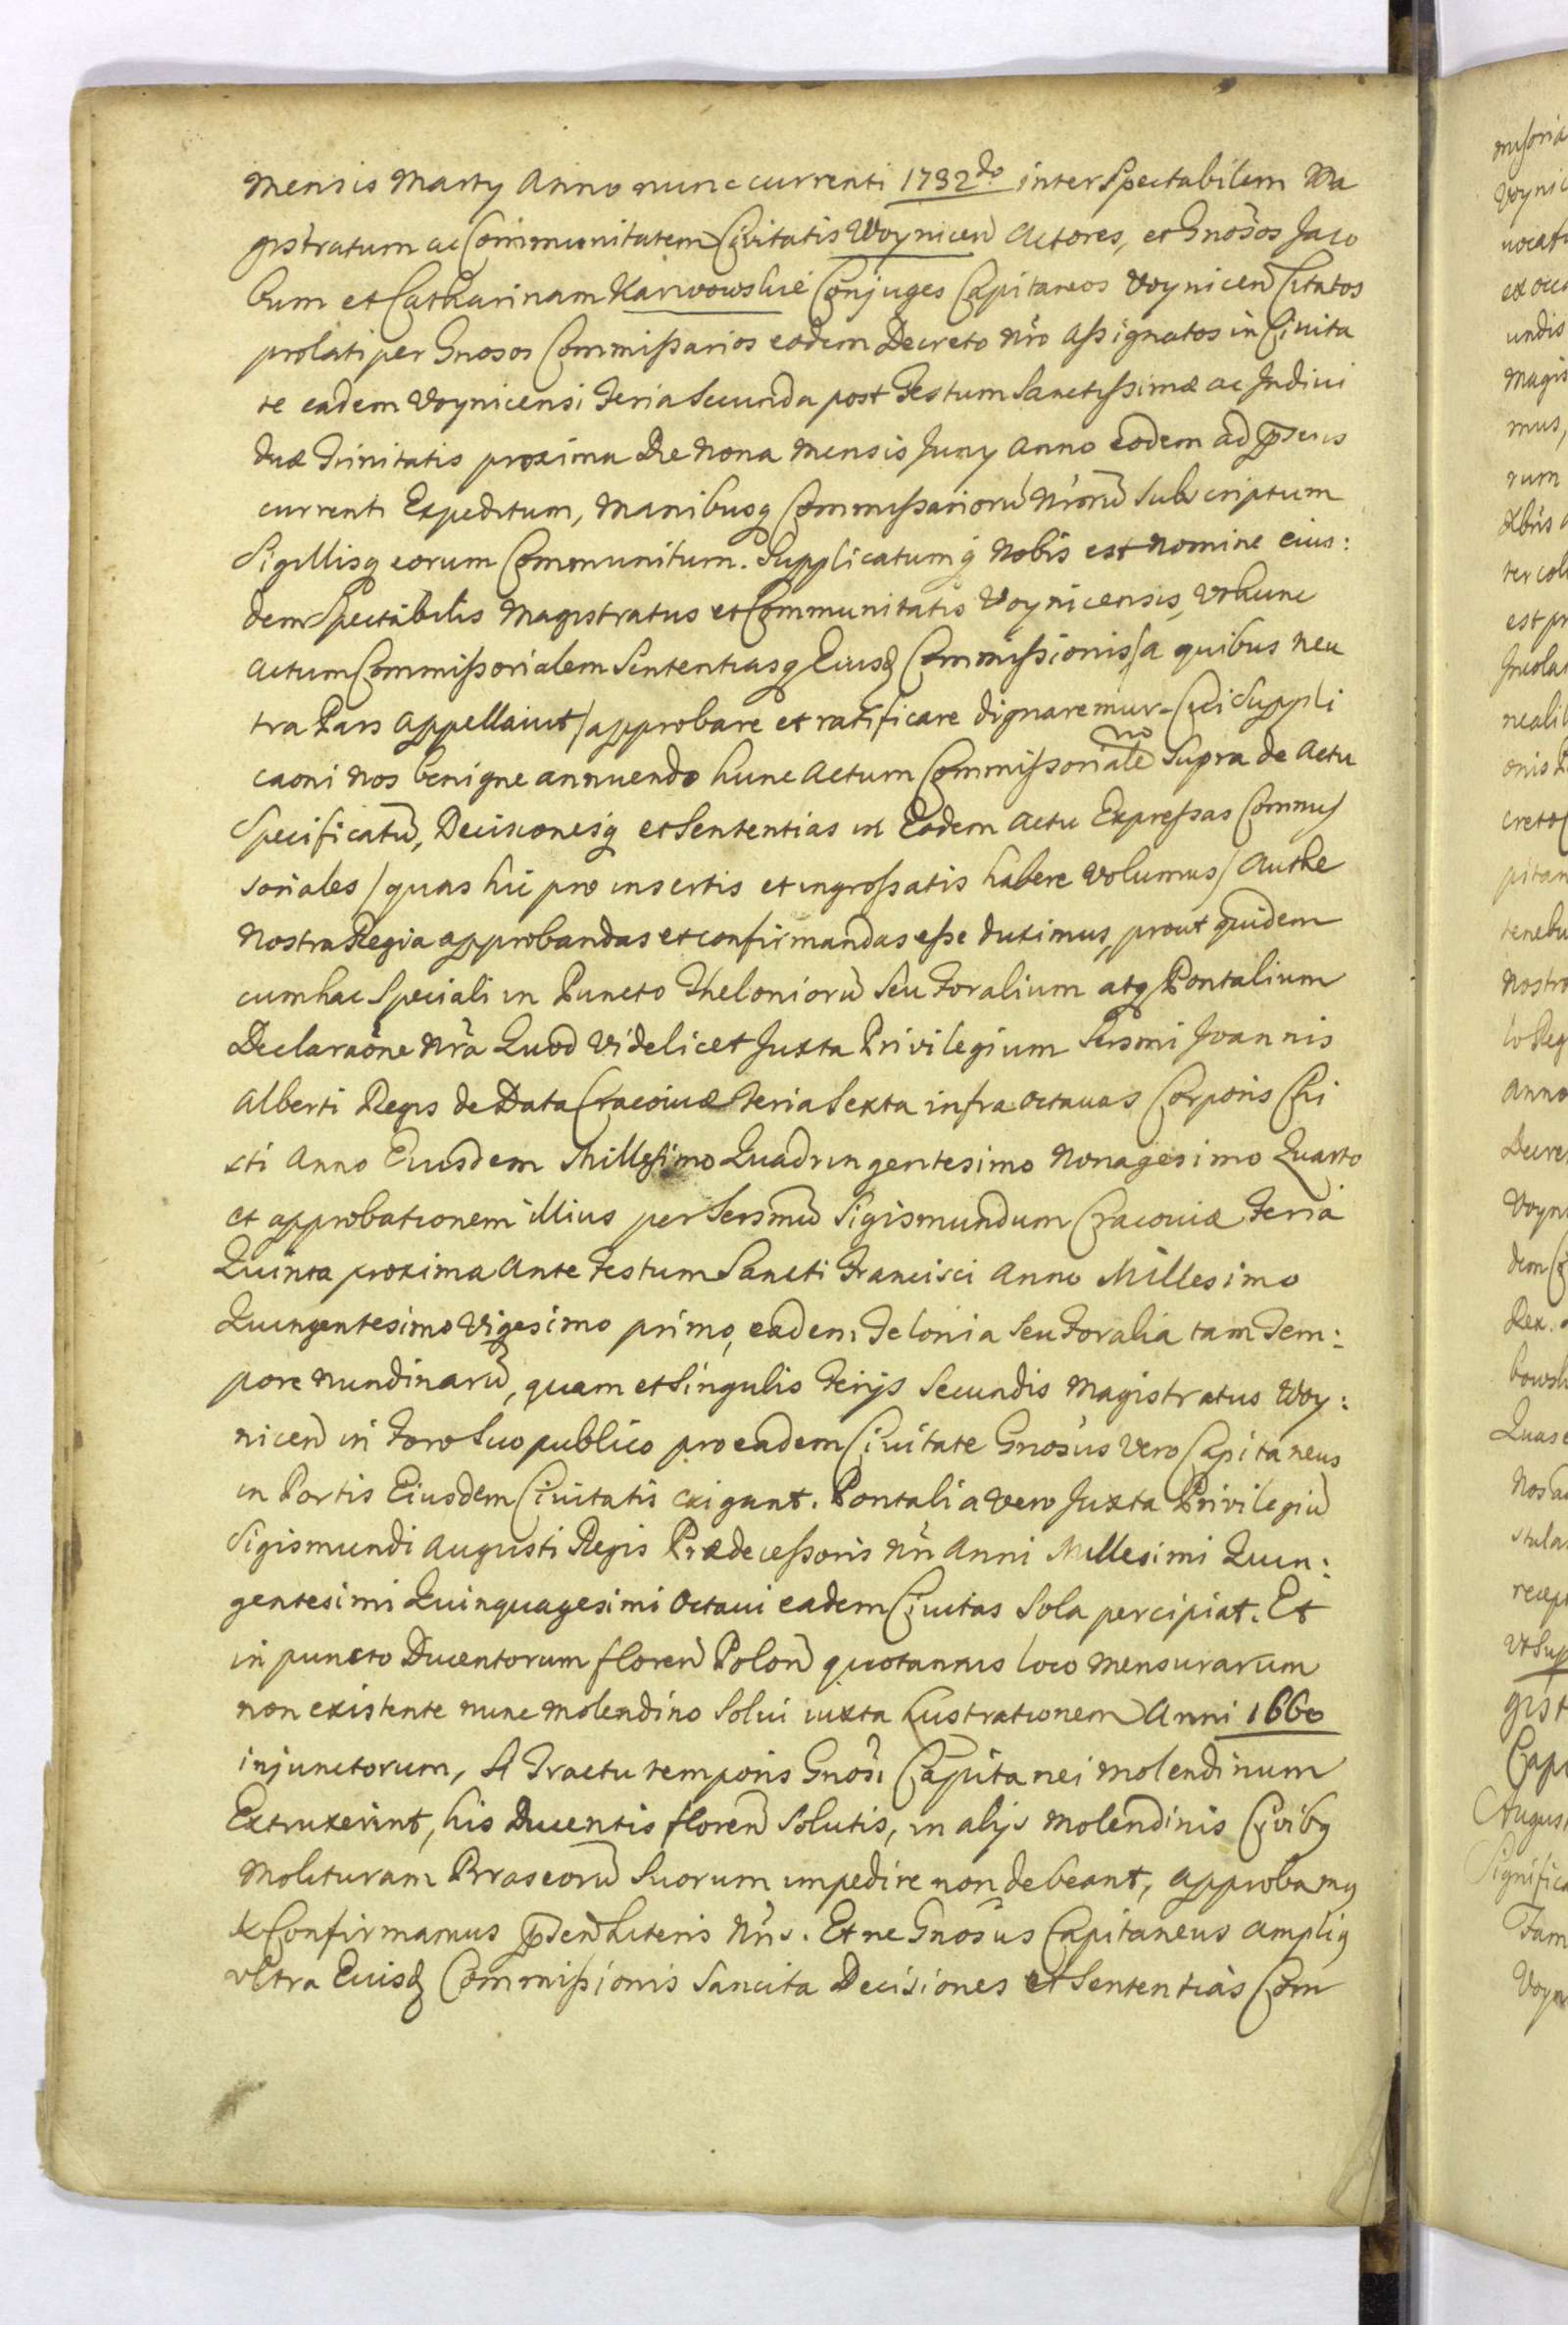 mensis Marty Anno nunc currenti 1732do inter Spectabilem Ma
gistratum ac Communitatem Civitatis Woynicen̄ Actores, et Gnosos Jaco
bum et Catharinam Karwowskie Conjuges Capitaneos Voynicen̄ Citatos
prolati per Gnosos Commißarios eodem Decreto nr̄o Aßignatos in Civita
te eadem Voynicensi Feria Secunda post Festum Sanctißimæ ac Indivi
duæ Trinitatis proxima Die Nona Mensis Juny Anno eodem ad p̄sens
currenti Expeditum, Manibusq Commißarioru̅ Nr̄oru̅ Subscriptum
Sigillisq eorum Communitum. Supplicatumq́ Nobis est nomine eius:
dem Spectabilis Magistratus et Communitatis Voynicensis, Vt hunc
Actum Commißorialem Sententiasq Eiusd Commißionis / a quibus neu
tra Pars Appellavit / approbare et ratificare dignaremur. Cui Suppli
caoni Nos benigne annuendo hunc Actum Commißoriale no Supra de Actu
Specificatu̅, Decisionesq́ et Sententias in Eodem Actu Expreßas Commis
soriales / quas hic pro insertis et ingroßatis habere Volumus / Authe
Nostra Regia approbandas et confirmandas eße duximus, prout quidem
cum hac Speciali in Puncto Theloniorū Seu Foralium atq Pontalium
Declaraōne nr̄a Quod Videlicet Juxta Privilegium Sersmi Joannis
Alberti Regis de Data Cracoviæ Feria Sexta infra Octavas Corporis Chri
sti Anno Eiusdem Millesimo Quadringentesimo Nonagesimo Quarto
et approbationem illius per Sersmu̅ Sigismundum Cracoviæ Feria
Quinta proxima Ante Festum Sancti Francisci Anno Millesimo
Quingentesimo Vigesimo primo, eadem Telonia Seu Foralia tam Tem:
pore Nundinaru̅, quam et Singulis Ferijs Secundis Magistratus Woy:
nicen̄ in Foro Suo publico pro eadem Civitate Gnosus vero Capitaneus
in Portis Eiusdem Civitatis exigant. Pontalia vero Juxta Privilegiu̅
Sigismundi Augusti Regis Prædeceßoris nr̄i Anni Millesimi Quin:
gentesimi Quinquagesimi Octavi eadem Civitas Sola percipiat. Et
in puncto Ducentorum floren̄ Polon̄ quotannis loco mensurarum
non existente nunc molendino Solvi iuxta Lustrationem Anni 1660
injunctorum, Si Tractu temporis Gnosi Capitanei molendinum
Extruxerint, his Ducentis floren̄ Solutis, in alijs Molendinis Civibq
Molituram Braseoru̅ Suorum impedire non debeant, approbamq
& Confirmamus p̄sen̄ Literis Nr̄is. Et ne Gnosus Capitaneus amplig
vltra Eiusd Commißionis Sancita Decisiones et Sententias Com